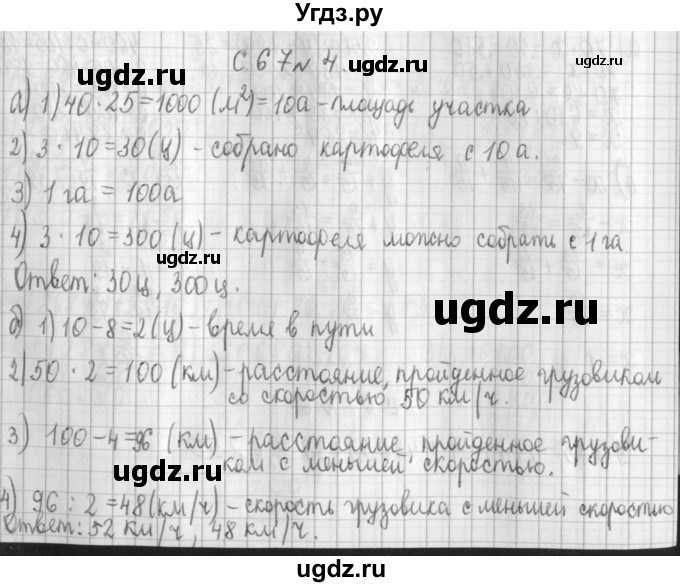 Угдз.ру
С 67 № 4.
ugdz.ru
ugdz.ru
ugdz.ru
а) 1) 40 · 25 = 1000 (м²) = 10а - площадь участка
2) 3 · 10 = 30 (ц) - собрано картофеля с 10 а.
3) 1 га = 100а
ugdz.ru
4) 3 · 10 = 300 (ц) - картофеля можно собрать с 1 га.
ugdz.ru
Ответ: 30 ц, 300 ц.
ugdz.ru
б) 1) 10 - 8 = 2 (ц) - время в пути
2) 50 · 2 = 100 (км) - расстояние, пройденное грузовиком
со скоростью 50 км/ч.
3) 100 - 4 = 96 (км) - расстояние, пройденное грузови-
ugdz.ru
ugdz.ru
ком с меньшей скоростью.
4) 96 : 2 = 48 (км/ч) - скорость грузовика с меньшей скоростью
Ответ: 52 км/ч, 48 км/ч.
ugdz.ru